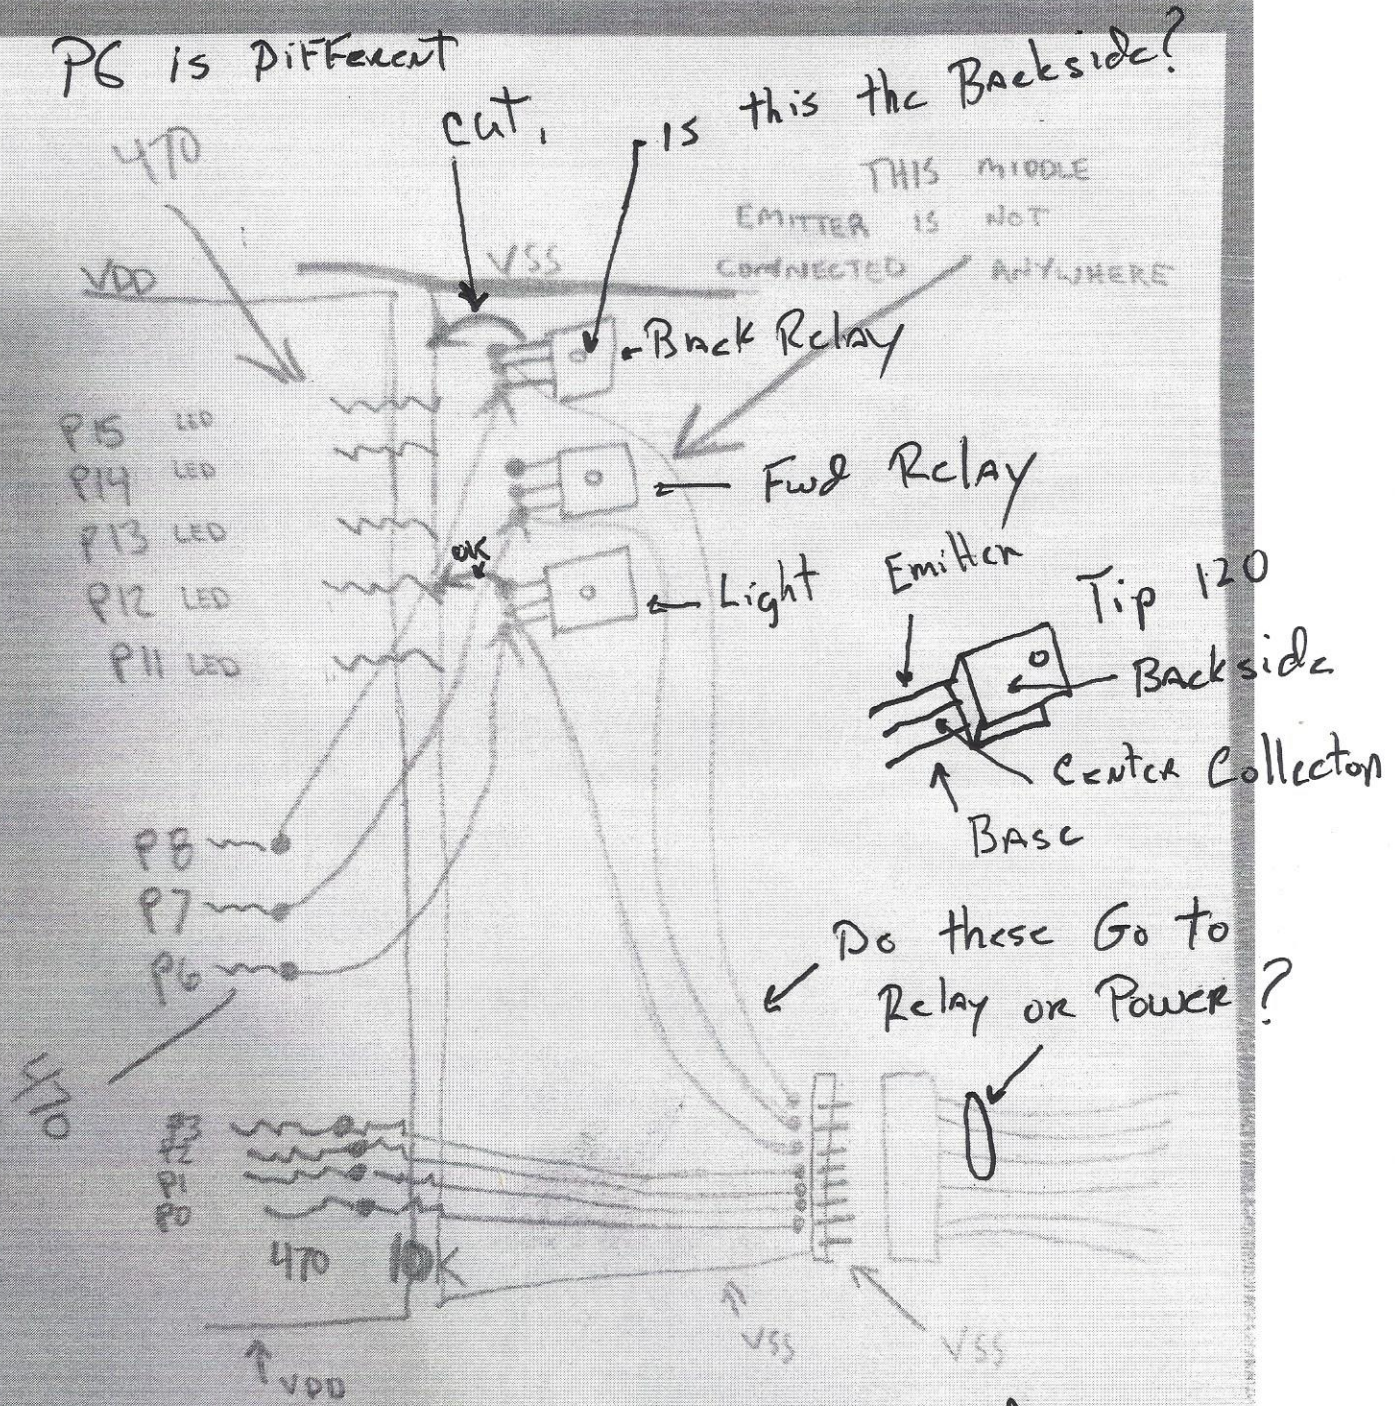 P6 is Different
cut.
is this the Backside?
470
THIS MIDDLE
EMITTER IS NOT
CONNECTED ANYWHERE
VDD
VSS
Back Relay
P15 LED
P14 LED
P13 LED
P12 LED
P11 LED
Fwd Relay
OK
Light
Emitter
Tip 120
Backside
Center Collector
Base
P8
P7
P6
470
Do these Go to
Relay or Power?
P3
P2
P1
P0
470 10K
VSS
VSS
VDD